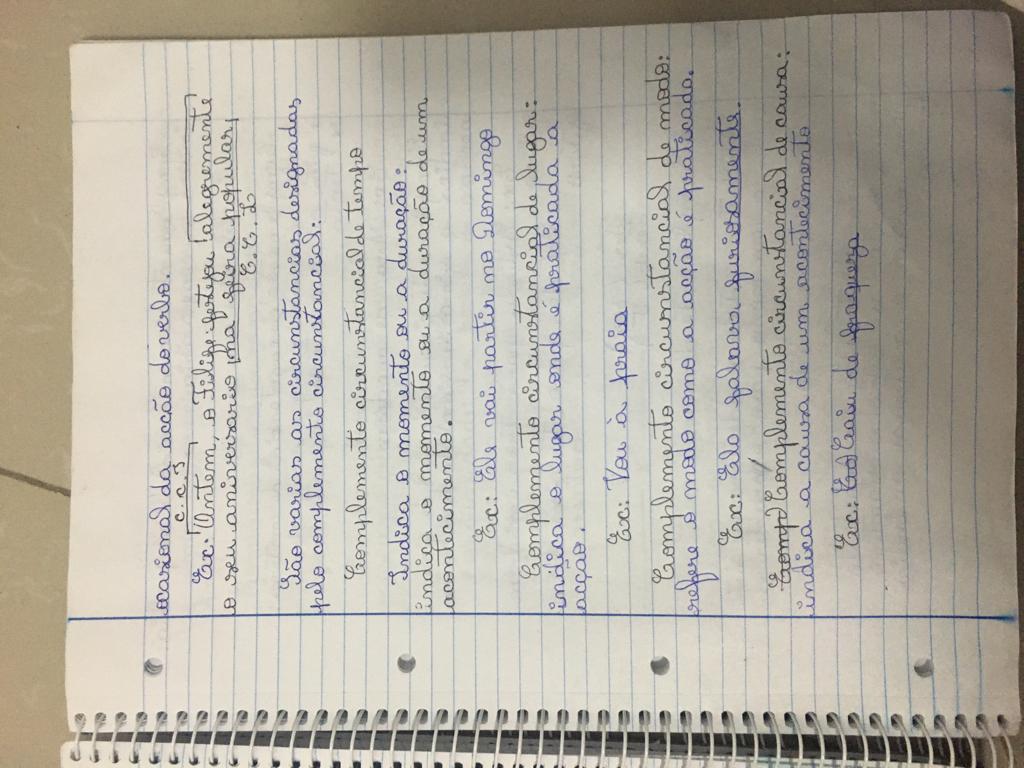 ocasional da acção do verbo.
C.C.T
Ex: Ontem, o Filipe festejou alegremente
o seu aniversario na feira popular,
C.C.L
São varias as circunstancias designadas
pelo complemento circunstancial:
Complemento circunstancial de tempo
Indica o momento ou a duração:
indica o momento ou a duração de um
acontecimento.
Ex: Ele vai partir no Domingo
Complemento circunstancial de lugar:
indica o lugar onde é praticada a
acção.
Ex: Vou à praia
Complemento circunstancial de modo:
refere o modo como a acção é praticada.
Ex: Ela falava furiosamente.
Comp) Complemento circunstancial de causa:
indica a causa de um acontecimento
Ex: Ca) Caiu de fraqueza